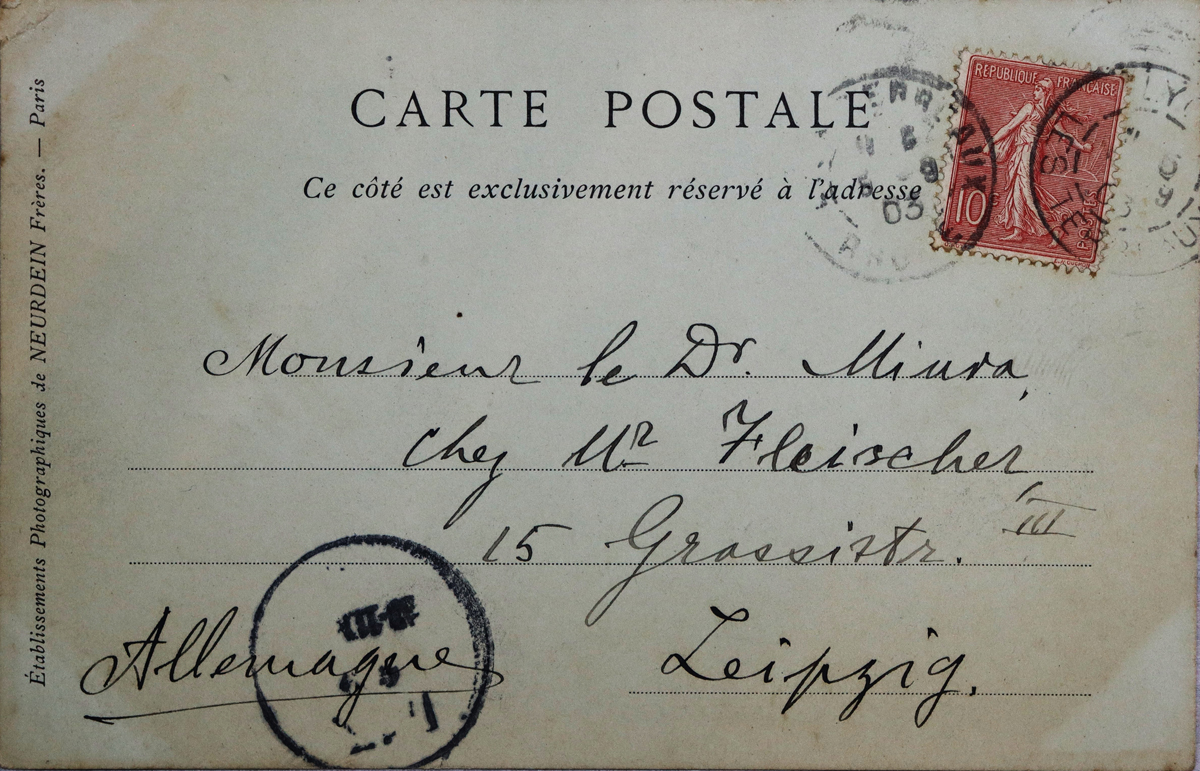 CARTE POSTALE
Ce côté est exclusivement réservé à l'adresse
RÉPUBLIQUE FRANÇAISE
10 c
POSTES
03
Monsieur le Dr. Miura,
chez Mr Fleischer,
15 Grassistr. III
Leipzig.
Allemagne
Établissements Photographiques de NEURDEIN Frères. — Paris